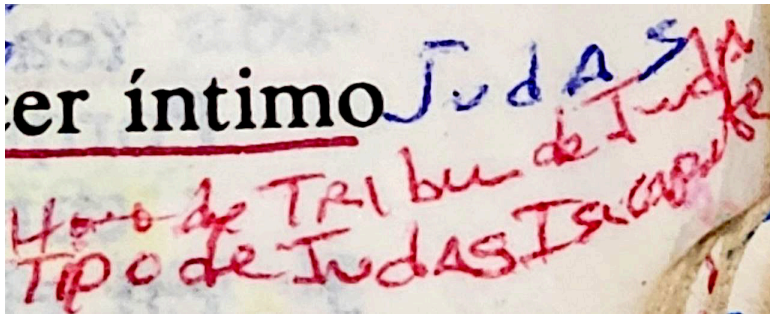 cer íntimo Judas
de TRIbu de Juda
TIPO de Judas Iscariote